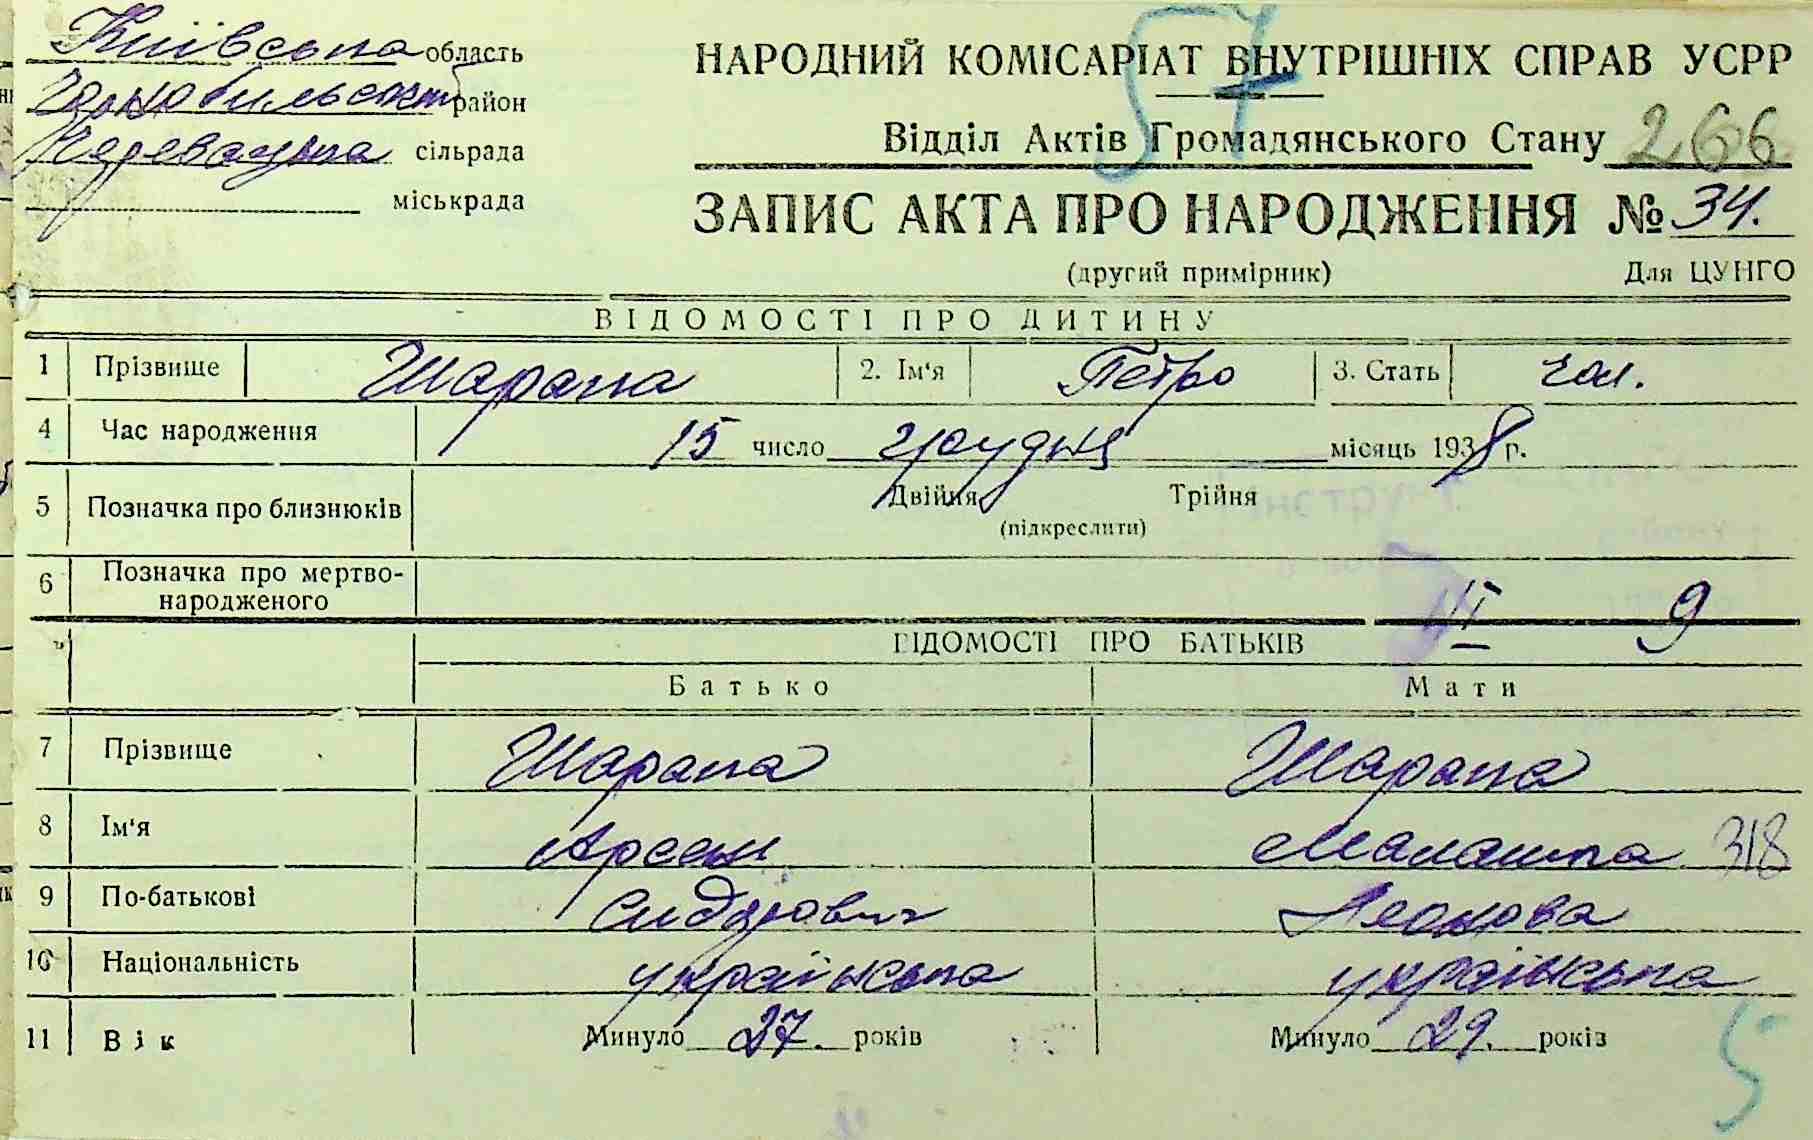 Київська область
Чорнобильськ район
сільрада
міськрада
57
НАРОДНИЙ КОМІСАРІАТ ВНУТРІШНІХ СПРАВ УСРР
Відділ Актів Громадянського Стану 266
ЗАПИС АКТА ПРО НАРОДЖЕННЯ № 34.
(другий примірник) Для ЦУНГО
ВІДОМОСТІ ПРО ДИТИНУ
1 Прізвище Шарапа 2. Ім'я Петро 3. Стать чол.
4 Час народження 15 число грудня місяць 1938 р.
5 Позначка про близнюків Двійня Трійня
(підкреслити)
6 Позначка про мертво-
народженого
VI 9
ВІДОМОСТІ ПРО БАТЬКІВ
Батько Мати
7 Прізвище Шарапа Шарапа
8 Ім'я Арсен Малашка 318
9 По-батькові Сидорович
10 Національність українська українська
11 Вік Минуло 27. років Минуло 29. років
5